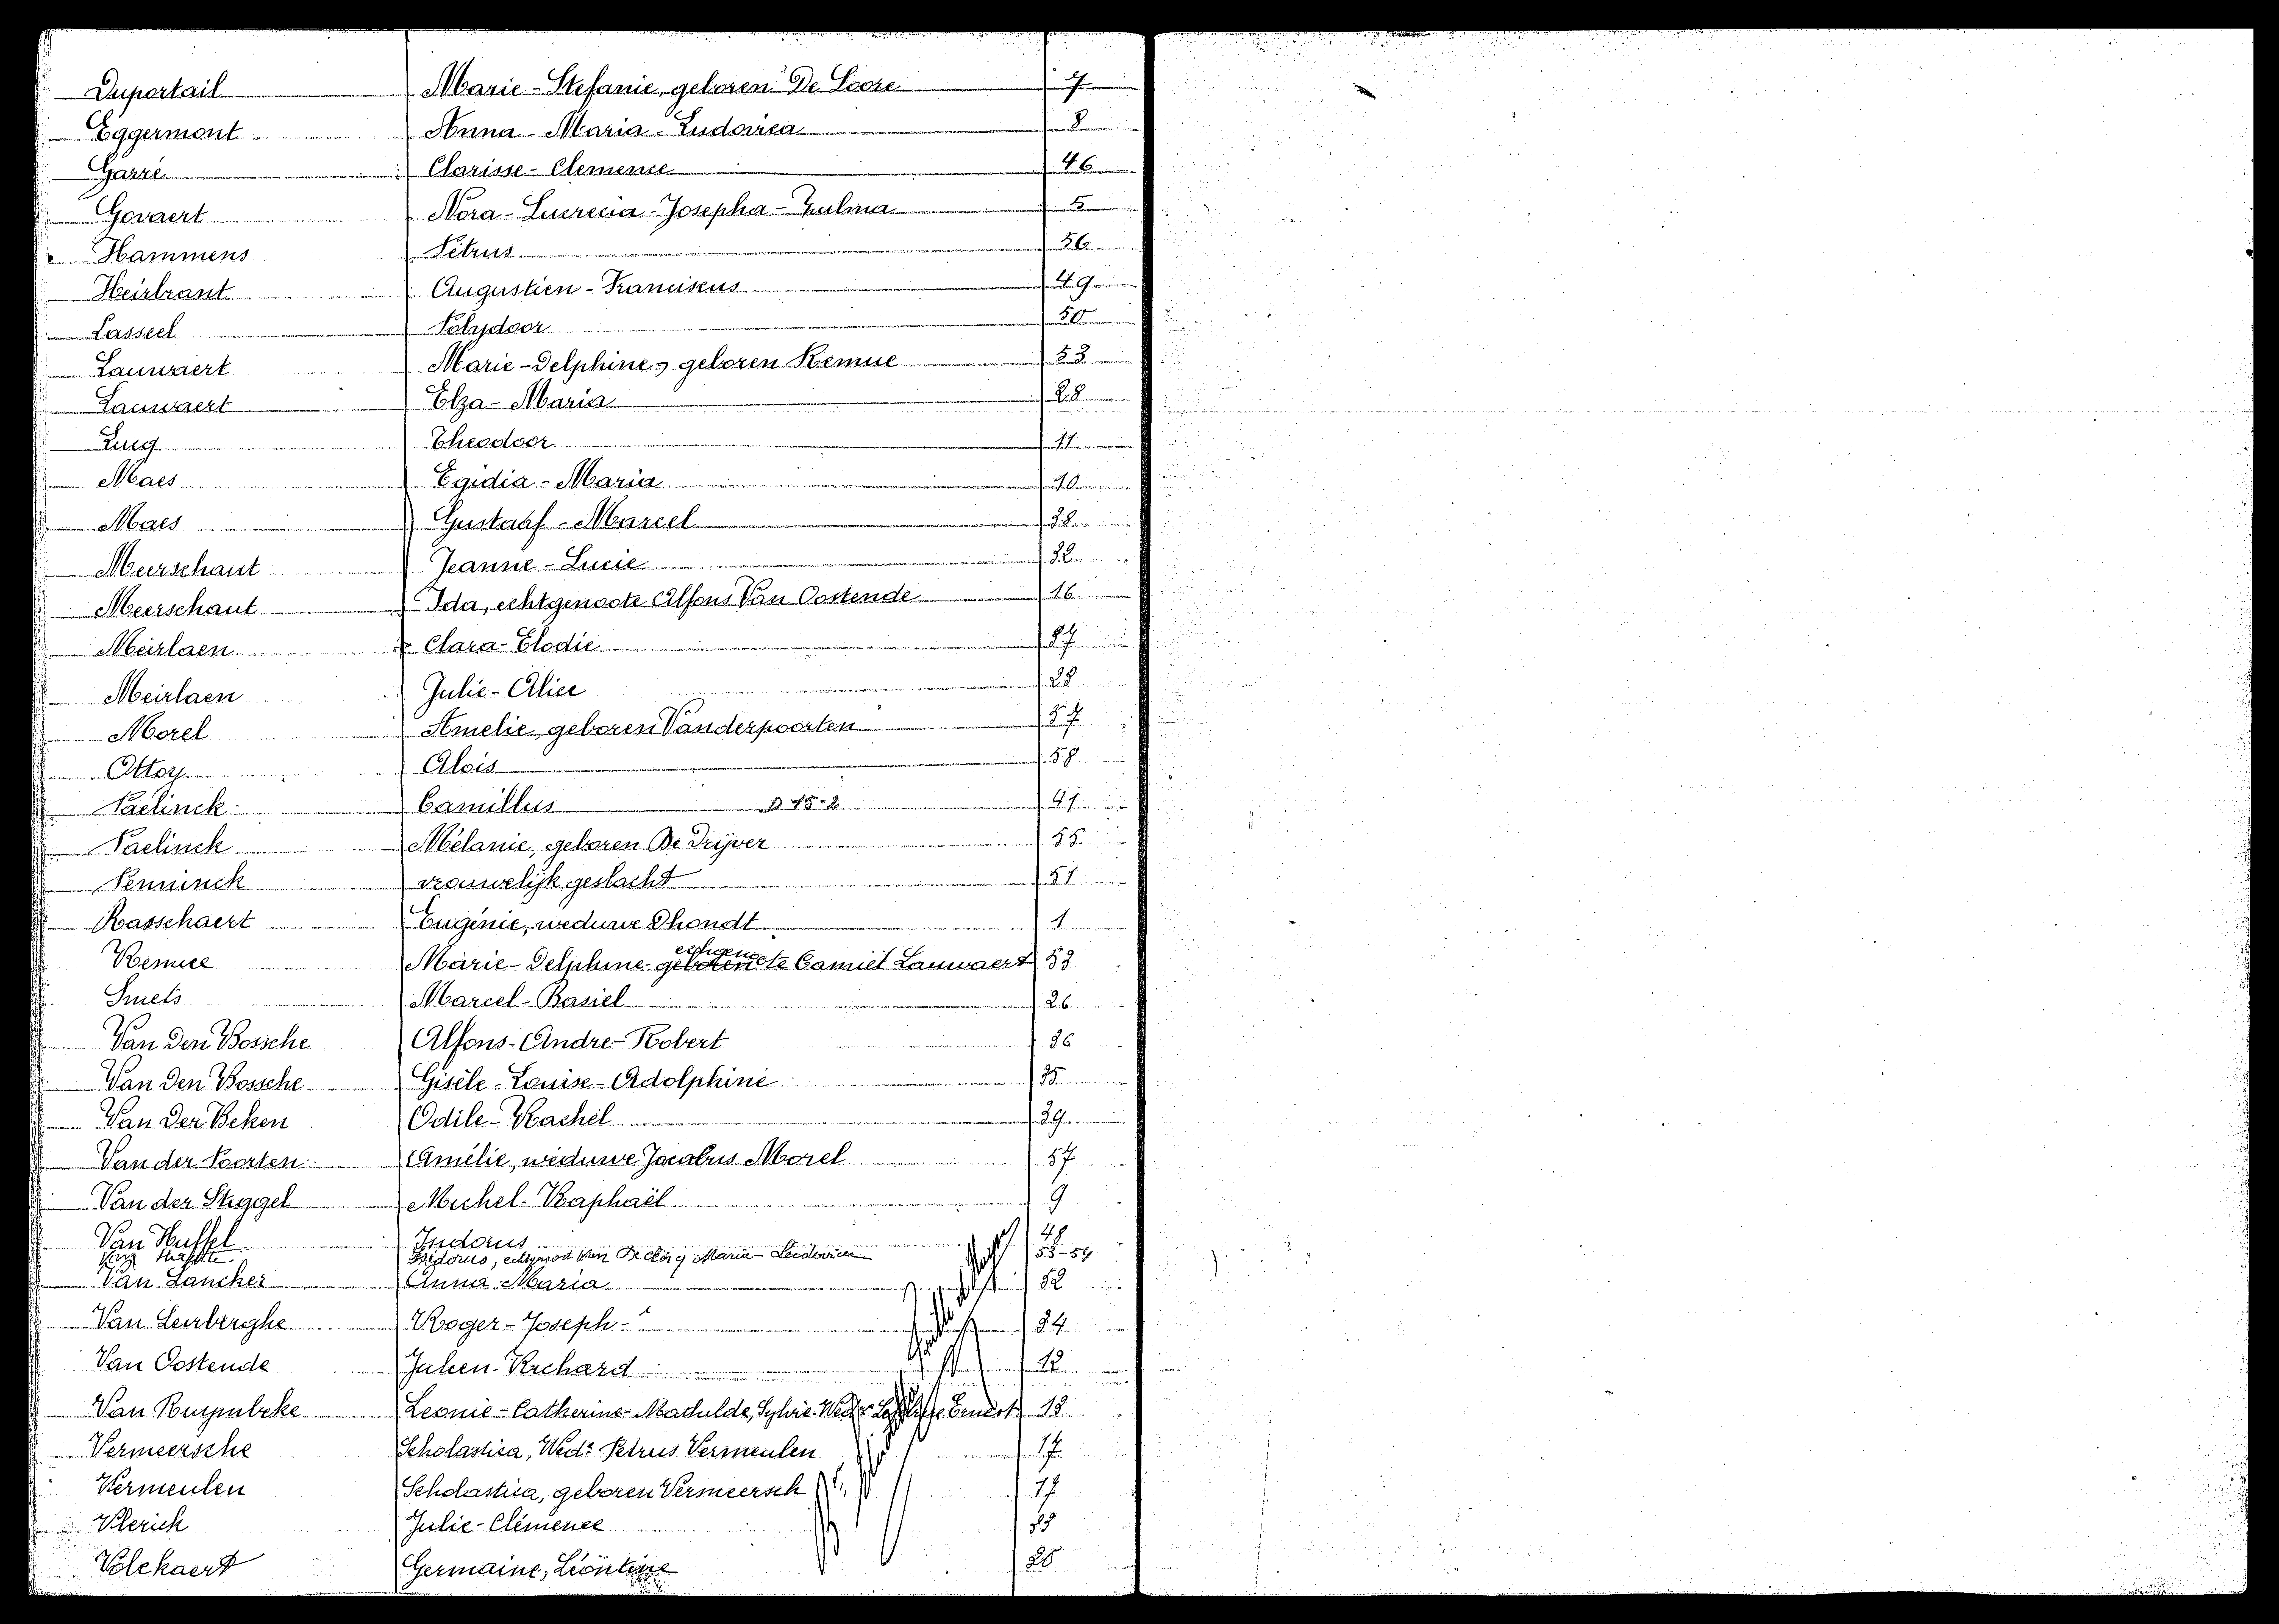 Dupertail Marie-Stefanie, geboren De Score 7
Eggermont Anna-Maria-Ludovica 8
Garré Clarisse-Clemence 46
Gevaert Nora-Lucrecia-Josepha-Zulma 5
Hammens Petrus 56
Heirbrant Augustien-Franciscus 49
Lasseel Polydoor 50
Lauwaert Marie-Delphine, geboren Remue 53
Lauwaert Elza-Maria 28
Luyg Theodoor 11
Maes Egidia-Maria 10
Maes Gustaaf-Marcel 38
Meerschaut Jeanne-Lucie 32
Meerschaut Ida, echtgenoote Alfons Van Oostende 16
Meirlaen Clara-Elodie 27
Meirlaen Julie-Alice 28
Morel Amelie geboren Vanderpoorten 57
Ottoy Alois 58
Paelinck Camillus D 15-2 41
Paelinck Mélanie, geboren De Drijver 55
Penninck vrouwelijk geslacht 51
Rasschaert Eugénie, weduwe Dhondt 1
Remue Marie-Delphine echtgenoote Camiel Lauwaert 53
Smets Marcel-Basiel 26
Van Den Bossche Alfons-Andre-Robert 36
Van Den Bossche Gisèle-Louise-Adolphine 35
Van Der Beken Odile-Rachel 39
Van der Poorten Amélie, weduwe Jacobus Morel 57
Van der Stiggel Michel-Raphaël 9
Van Huffel Isidorus 48
Isidorus, Maria-Ludovica 53-54
Van Lancker Anna Maria 52
Van Lerberghe Roger-Joseph 34
Van Oostende Julien-Richard 12
Van Rumbeke Leonie-Catherine-Mathilde, Sylvie Ernest 13
Vermeersche Scholastica, Wede Petrus Vermeulen 17
Vermeulen Scholastica, geboren Vermeersch 17
Vlerick Julie-Clémence
Volckaert Germaine, Léontine